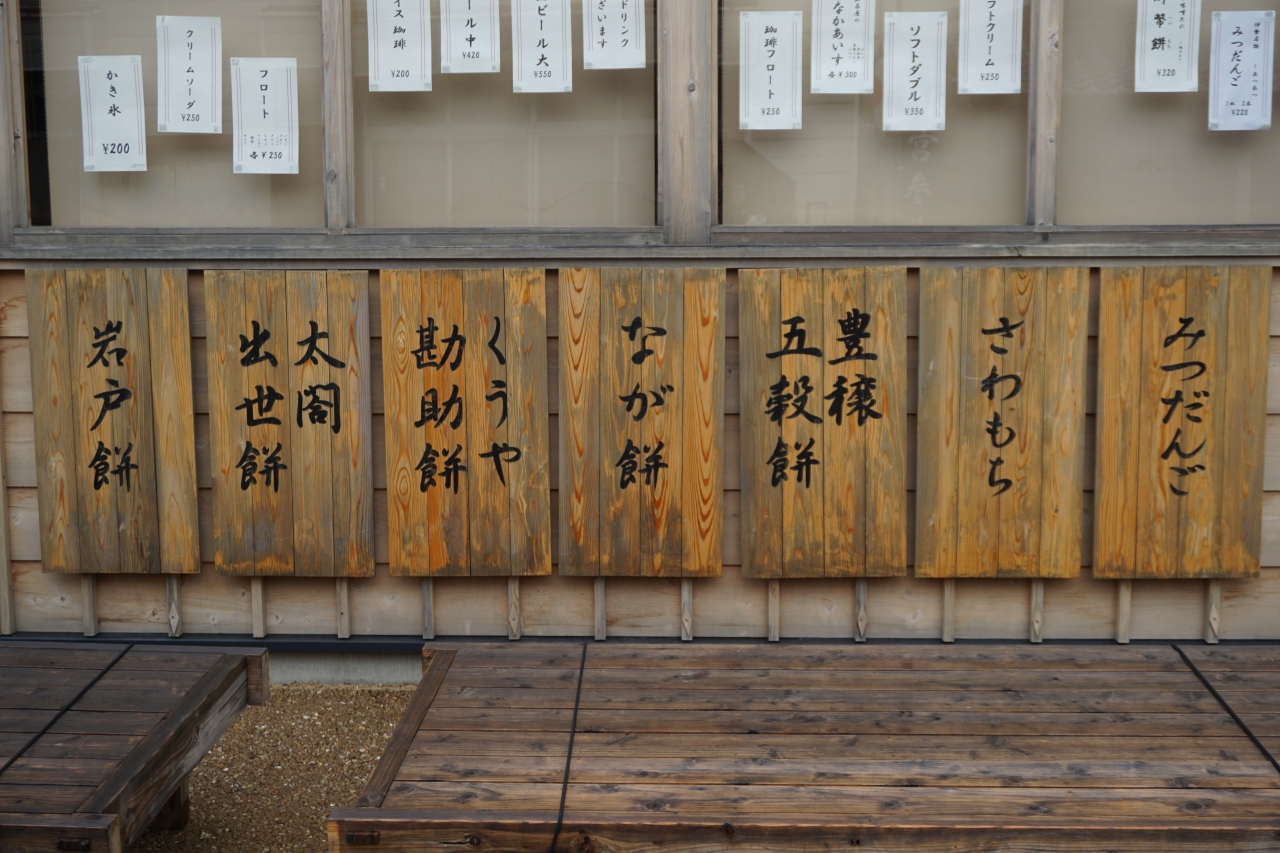 伊勢名物
みつだんご
¥220
幣餅
¥320
フトクリーム
¥250
ソフトダブル
¥350
なかあいす
各¥300
珈琲フロート
¥250
ドリンク
ざいます
ビール大
¥550
ール中
¥420
イス珈琲
¥200
フロート
各¥250
クリームソーダ
¥250
かき氷
¥200
みつだんご
さわもち
豊穣
五穀餅
なが餅
くうや
勘助餅
太閤
出世餅
岩戸餅